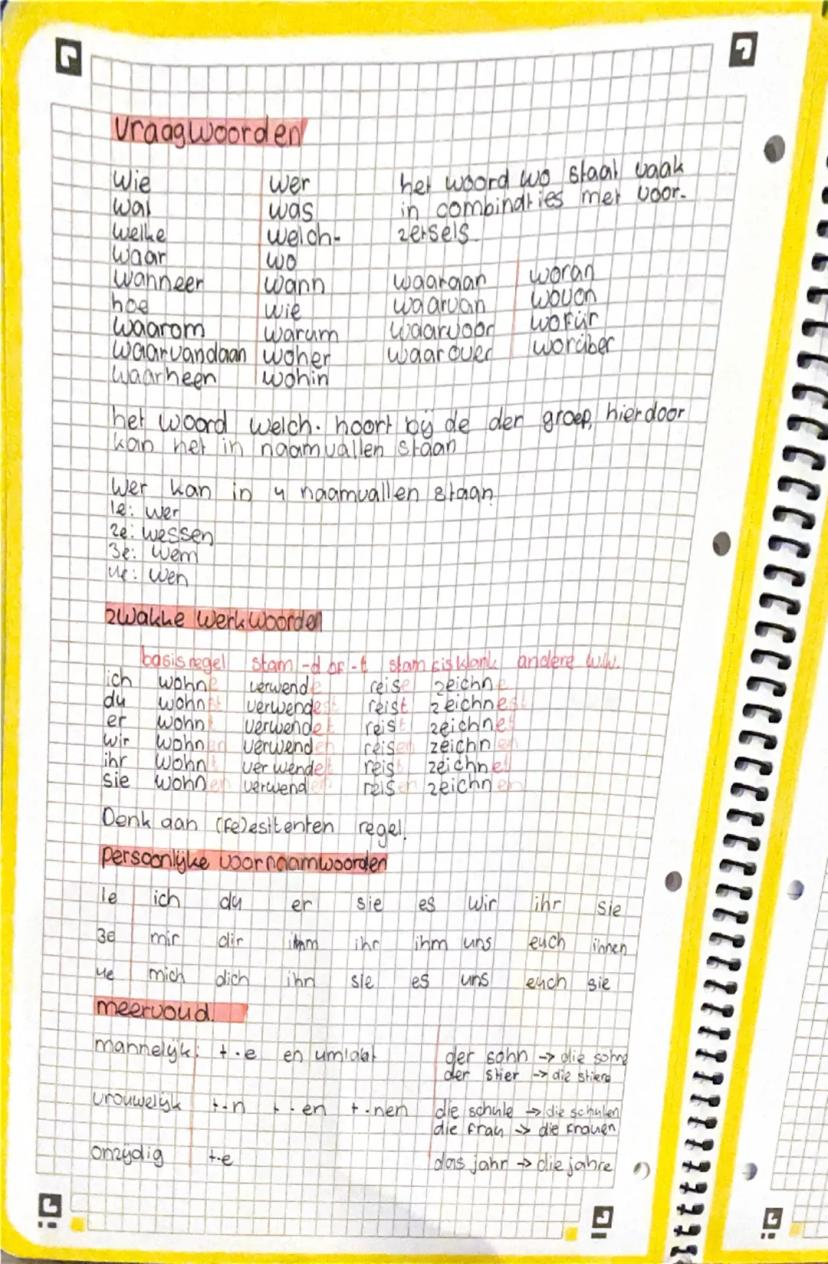 vraagwoorden
wie wer het woord wo staat vaak
wat was in combinaties met voor-
welke welch- zetsels.
waar wo
wanneer wann waaraan woran
hoe wie waarvan wovon
waarom warum waarvoor wofür
waarvandaan woher waarover worüber
waarheen wohin
het woord welch- hoort bij de der groep, hierdoor
kan het in naamvallen staan
Wer kan in 4 naamvallen staan
1e: wer
2e: wessen
3e: wem
4e: wen
zwakke werkwoorden
basisregel stam -d of -t stam sisklank andere w.w.
ich wohne verwende reise zeichne
du wohnst verwendest reist zeichnest
er wohnt verwendet reist zeichnet
wir wohnen verwenden reisen zeichnen
ihr wohnt verwendet reist zeichnet
sie wohnen verwenden reisen zeichnen
Denk aan (fe)esttenten regel.
persoonlijke voornaamwoorden
1e ich du er sie es wir ihr sie
3e mir dir ihm ihr ihm uns euch ihnen
4e mich dich ihn sie es uns euch sie
meervoud.
mannelijk: +-e en umlaut der sohn → die sohne
der stier → die stiere
vrouwelijk +-n +-en +-nen die schule → die schulen
die frau → die frauen
onzijdig +-e das jahr → die jahre